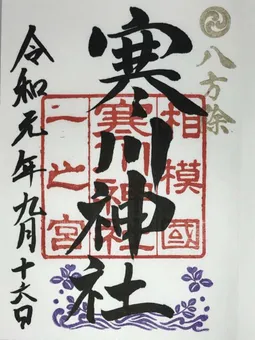 八方除
寒川神社
相模國
寒川神社
一之宮
令和元年九月十六日